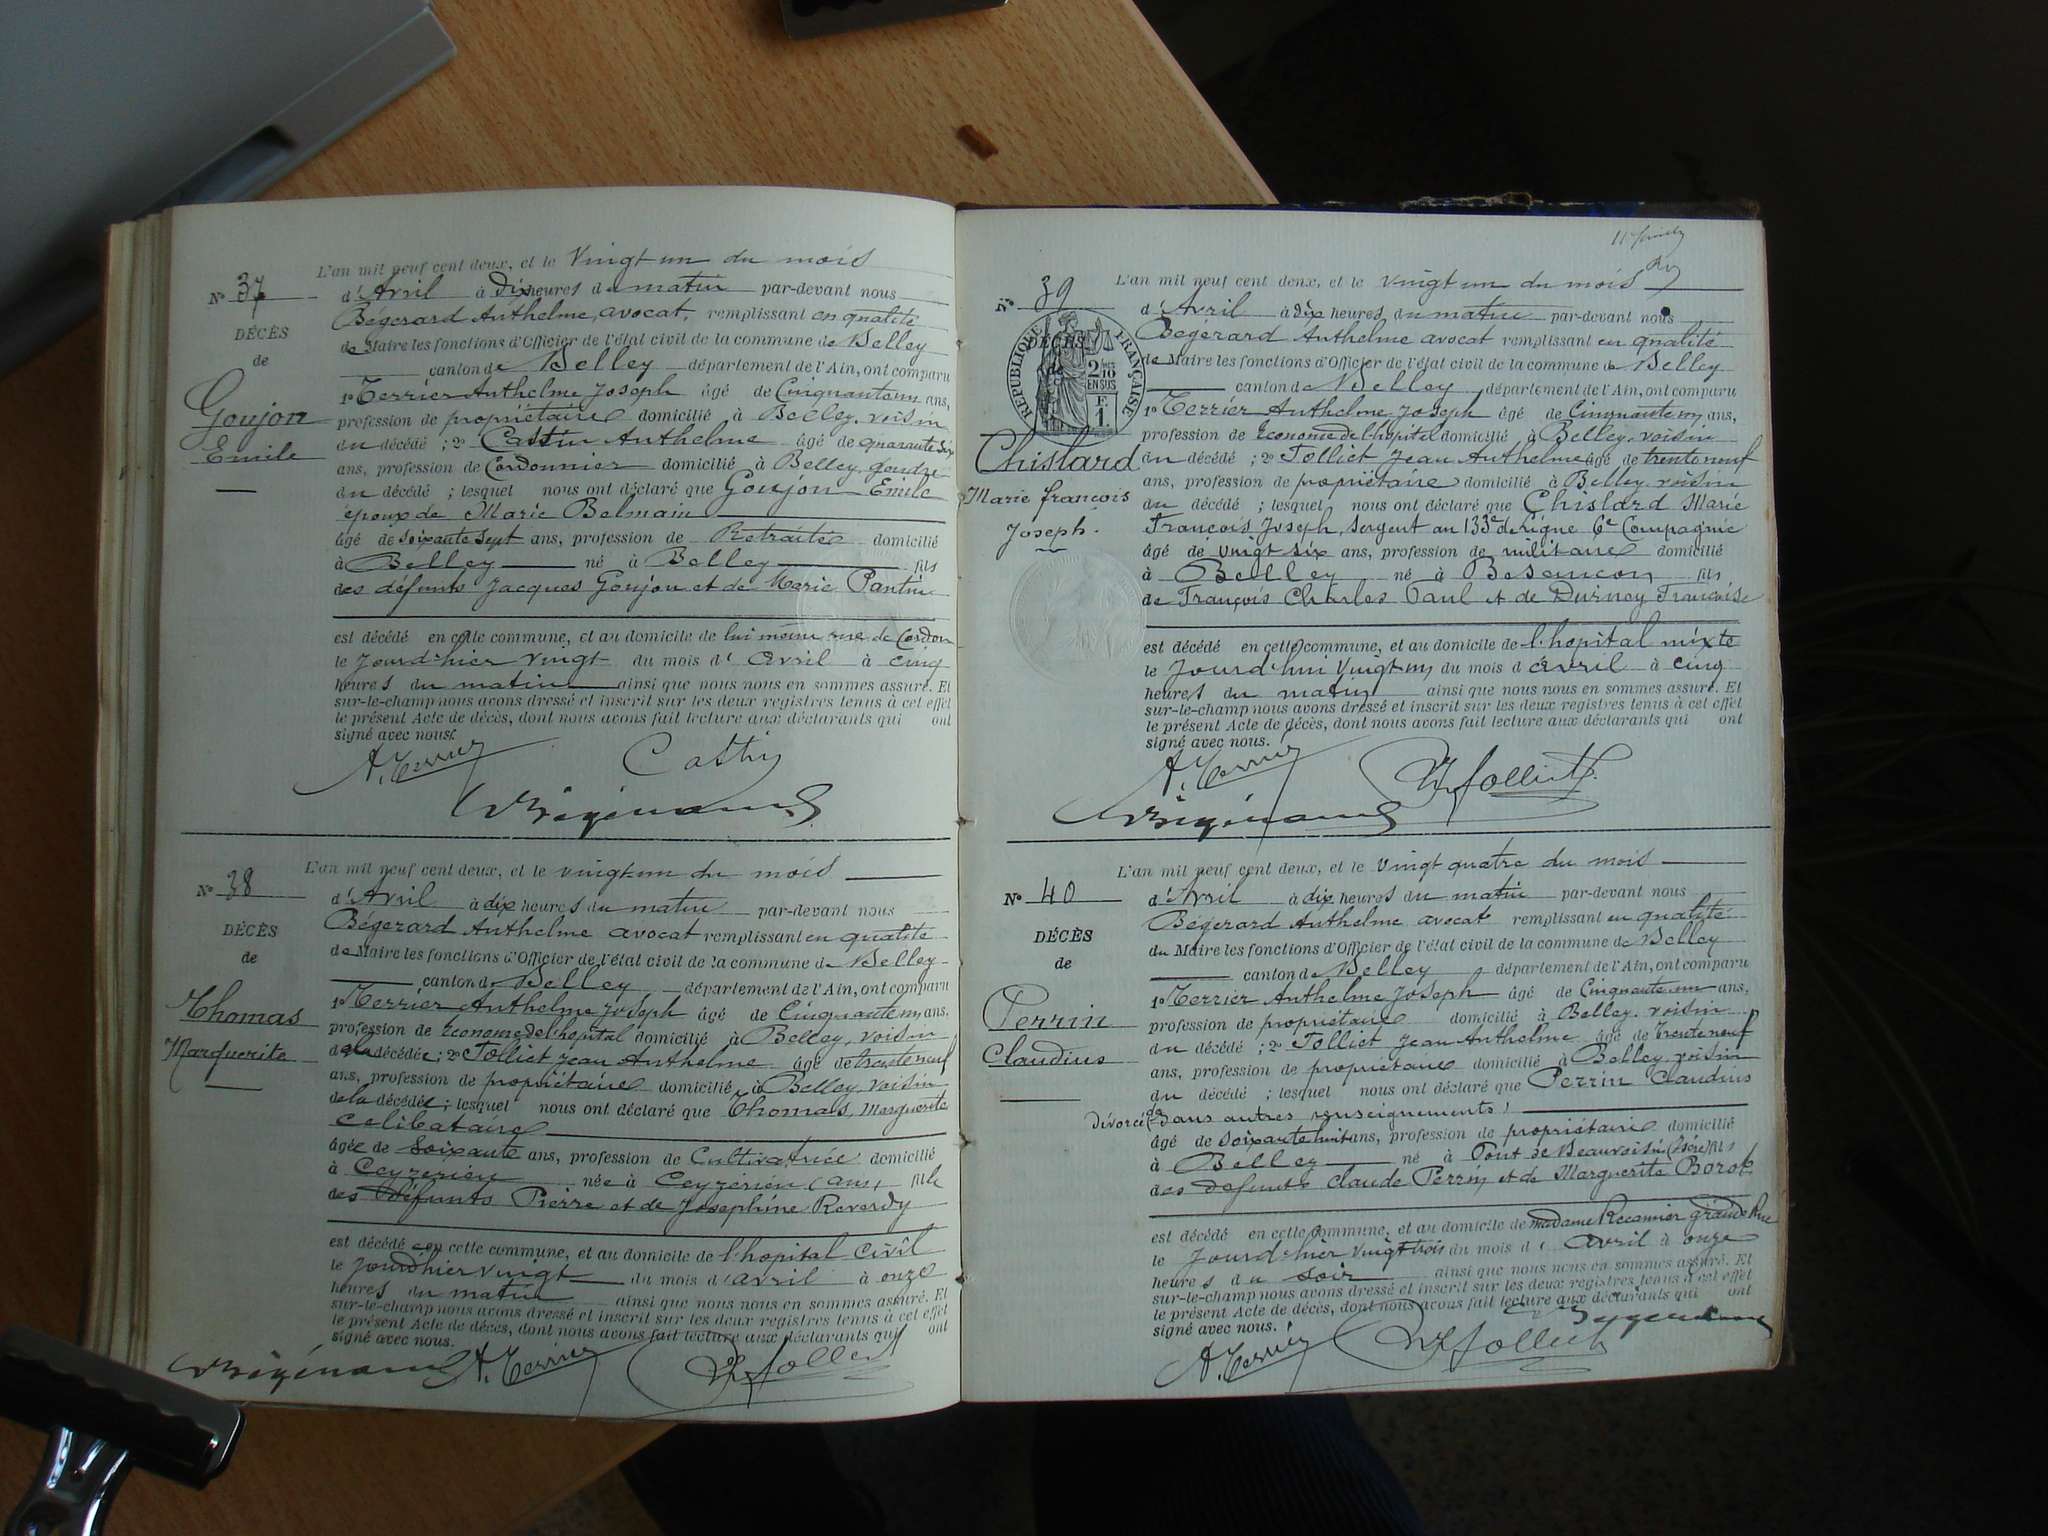 L'an mil neuf cent deux, et le vingt un du mois
N° 37 d'Avril à dix heures du matin par-devant nous
Bégerard Anthelme, avocat, remplissant en qualité
DÉCÈS de Maire les fonctions d'Officier de l'état civil de la commune de Belley
de canton de Belley département de l'Ain, ont comparu
1° Terrier Anthelme Joseph âgé de Cinquante un ans,
Goujon profession de propriétaire domicilié à Belley, voisin
Emile du décédé ; 2° Castin Anthelme âgé de quarante six
ans, profession de Cordonnier domicilié à Belley, gendre
du décédé ; lesquel nous ont déclaré que Goujon Emile
époux de Marie Belmain
âgé de soixante sept ans, profession de Retraité domicilié
à Belley né à Belley fils
des défunts Jacques Goujon et de Marie Pantin
est décédé en cette commune, et au domicile de lui même rue de Cordon
le jourd'hier vingt du mois d'avril à cinq
heures du matin ainsi que nous nous en sommes assuré. Et
sur-le-champ nous avons dressé et inscrit sur les deux registres tenus à cet effet
le présent Acte de décès, dont nous avons fait lecture aux déclarants qui ont
signé avec nous.
A. Terrier Castin
L'an mil neuf cent deux, et le vingt un du mois
N° 38 d'Avril à dix heures du matin par-devant nous
Bégerard Anthelme avocat remplissant en qualité
DÉCÈS de Maire les fonctions d'Officier de l'état civil de la commune de Belley
de canton de Belley département de l'Ain, ont comparu
1° Terrier Anthelme Joseph âgé de Cinquante un ans,
Thomas profession de Econome de l'hopital domicilié à Belley, voisin
Marguerite de la décédée ; 2° Tolliet Jean Anthelme âgé de trente neuf
ans, profession de propriétaire domicilié à Belley, voisin
de la décédée ; lesquel nous ont déclaré que Thomas Marguerite
Célibataire
âgée de soixante ans, profession de Cultivatrice domicilié
à Ceyzerieu née à Ceyzerieu (Ain) fille
des défunts Pierre et de Joséphine Reverdy
est décédé en cette commune, et au domicile de l'hopital Civil
le jourd'hier vingt du mois d'avril à onze
heures du matin ainsi que nous nous en sommes assuré. Et
sur-le-champ nous avons dressé et inscrit sur les deux registres tenus à cet effet
le présent Acte de décès, dont nous avons fait lecture aux déclarants qui ont
signé avec nous.
A. Terrier Tolliet
L'an mil neuf cent deux, et le vingt un du mois
N° 39 d'Avril à dix heures du matin par-devant nous
Bégerard Anthelme avocat remplissant en qualité
DÉCÈS de Maire les fonctions d'Officier de l'état civil de la commune de Belley
de canton de Belley département de l'Ain, ont comparu
RÉPUBLIQUE FRANÇAISE
2/10 EN SUS
F. 1.
1° Terrier Anthelme Joseph âgé de Cinquante un ans,
profession de Econome de l'hopital domicilié à Belley, voisin
Chislard du décédé ; 2° Tolliet Jean Anthelme âgé de trente neuf
ans, profession de propriétaire domicilié à Belley, voisin
Marie françois du décédé ; lesquel nous ont déclaré que Chislard Marie
Joseph. François Joseph, sergent au 133e de Ligne 6e Compagnie
âgé de vingt six ans, profession de militaire domicilié
à Belley né à Besançon fils
de François Charles Paul et de Durney Françoise
est décédé en cette commune, et au domicile de l'hopital mixte
le jourd'hui vingt un du mois d'avril à cinq
heures du matin ainsi que nous nous en sommes assuré. Et
sur-le-champ nous avons dressé et inscrit sur les deux registres tenus à cet effet
le présent Acte de décès, dont nous avons fait lecture aux déclarants qui ont
signé avec nous.
A. Terrier Tolliet
L'an mil neuf cent deux, et le vingt quatre du mois
N° 40 d'Avril à dix heures du matin par-devant nous
Bégerard Anthelme avocat remplissant en qualité
DÉCÈS du Maire les fonctions d'Officier de l'état civil de la commune de Belley
de canton de Belley département de l'Ain, ont comparu
1° Terrier Anthelme Joseph âgé de Cinquante un ans,
Perrin profession de propriétaire domicilié à Belley, voisin
Claudius du décédé ; 2° Tolliet Jean Anthelme âgé de trente neuf
ans, profession de propriétaire domicilié à Belley, voisin
du décédé ; lesquel nous ont déclaré que Perrin Claudius
divorcé (sans autres renseignements)
âgé de soixante huit ans, profession de propriétaire domicilié
à Belley né à Pont de Beauvoisin (Isère) fils
des défunts Claude Perrin et de Marguerite
est décédé en cette commune, et au domicile de madame Récamier grande Rue
le jourd'hier vingt trois du mois d'avril à onze
heures du soir ainsi que nous nous en sommes assuré. Et
sur-le-champ nous avons dressé et inscrit sur les deux registres tenus à cet effet
le présent Acte de décès, dont nous avons fait lecture aux déclarants qui ont
signé avec nous.
A. Terrier Tolliet